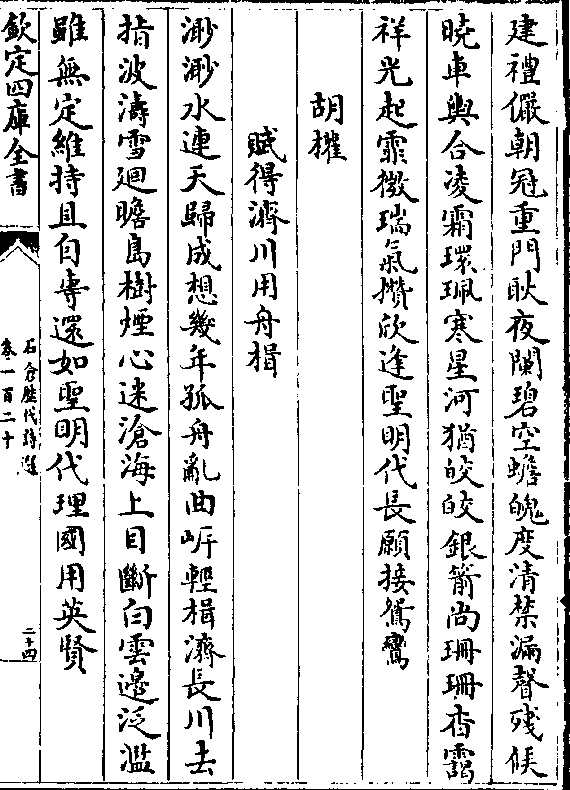 建禮儼朝冠重門耿夜闌碧空蟾魄度清禁漏聲殘候
曉車輿合凌霜環珮寒星河猶皎皎銀箭尚珊珊杳靄
祥光起霏微瑞氣攢欣逢聖明代長願接鴛鸞
胡權
賦得濟川用舟楫
渺渺水連天歸成想幾年孤舟亂曲岍輕楫濟長川去
指波濤雪廻瞻島樹煙心迷滄海上目斷白雲邊泛濫
雖無定維持且自專還如聖明代理國用英賢
欽定四庫全書
石倉歴代詩選
卷一百二十
二十四